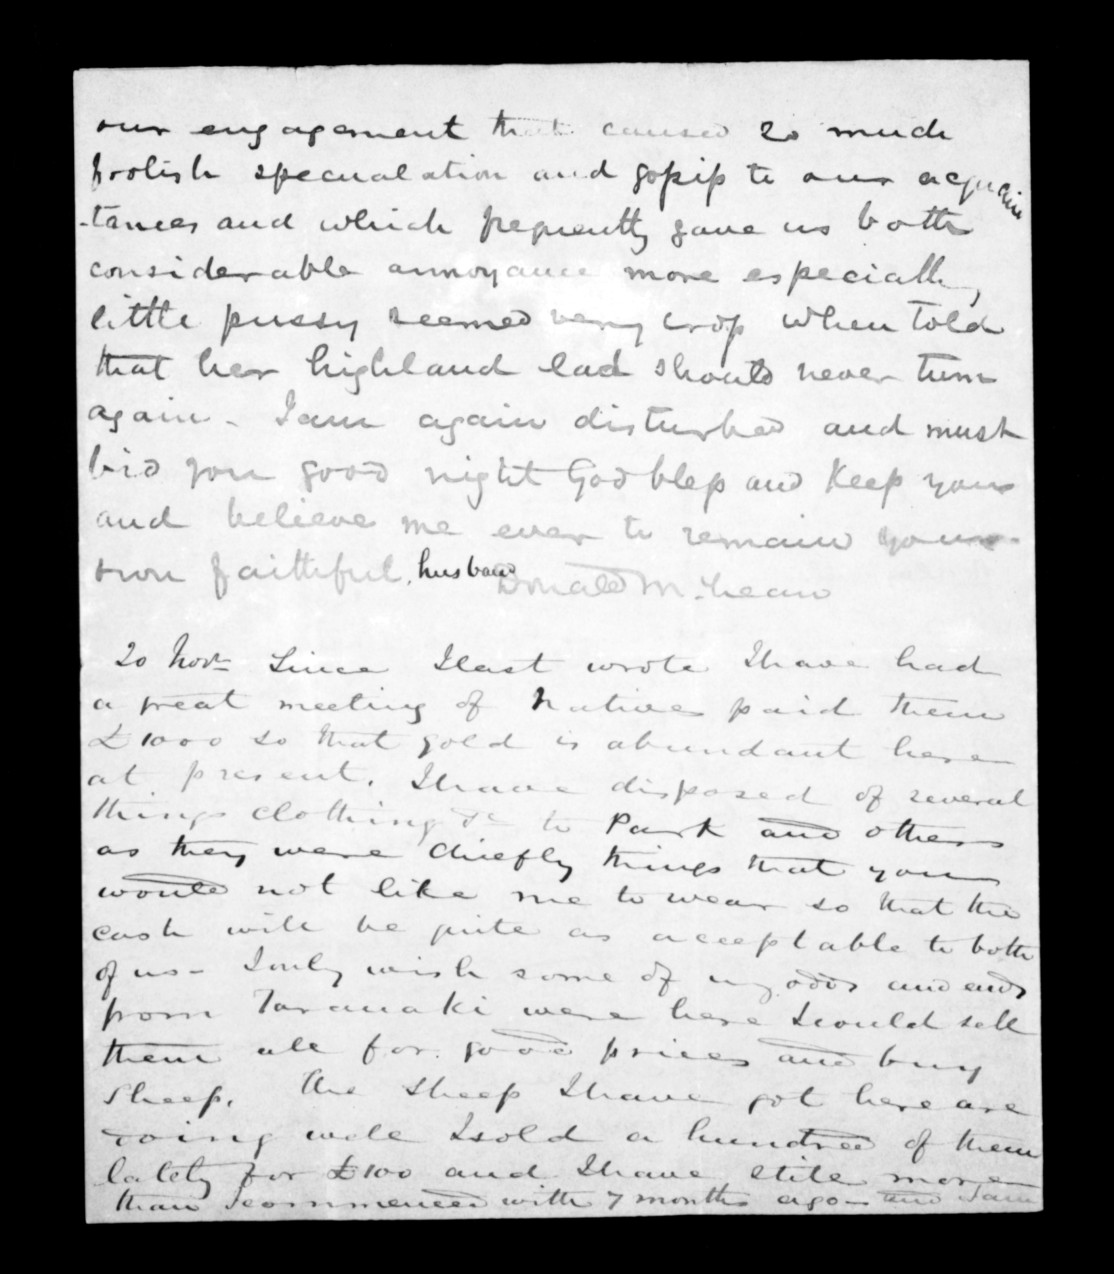 our engagement that caused so much
foolish specualation and gossip to our acquain
-tances and which frequently gave us both
considerable annoyance more especially
little pussy seemed very cross when told
that her highland lad should never turn
again - I am again disturbed and must
bid you good night God bless and keep you
and believe me ever to remain your
own faithful husband Donald McLean
20 Novr Since I last wrote I have had
a great meeting of Natives paid them
£1000 so that gold is abundant here
at present. I have disposed of several
things clothing &c to Park and others
as they were chiefly things that you
would not like me to wear so that the
cash will be quite as acceptable to both
of us - I only wish some of my odds and ends
from Taranaki were here I could sell
them all for good prices and buy
sheep. The sheep I have got here are
doing well I sold a hundred of them
lately for £100 and I have still more
than I commenced with 7 months ago - and I am